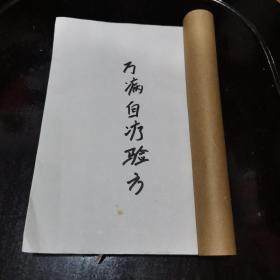 万病自疗验方